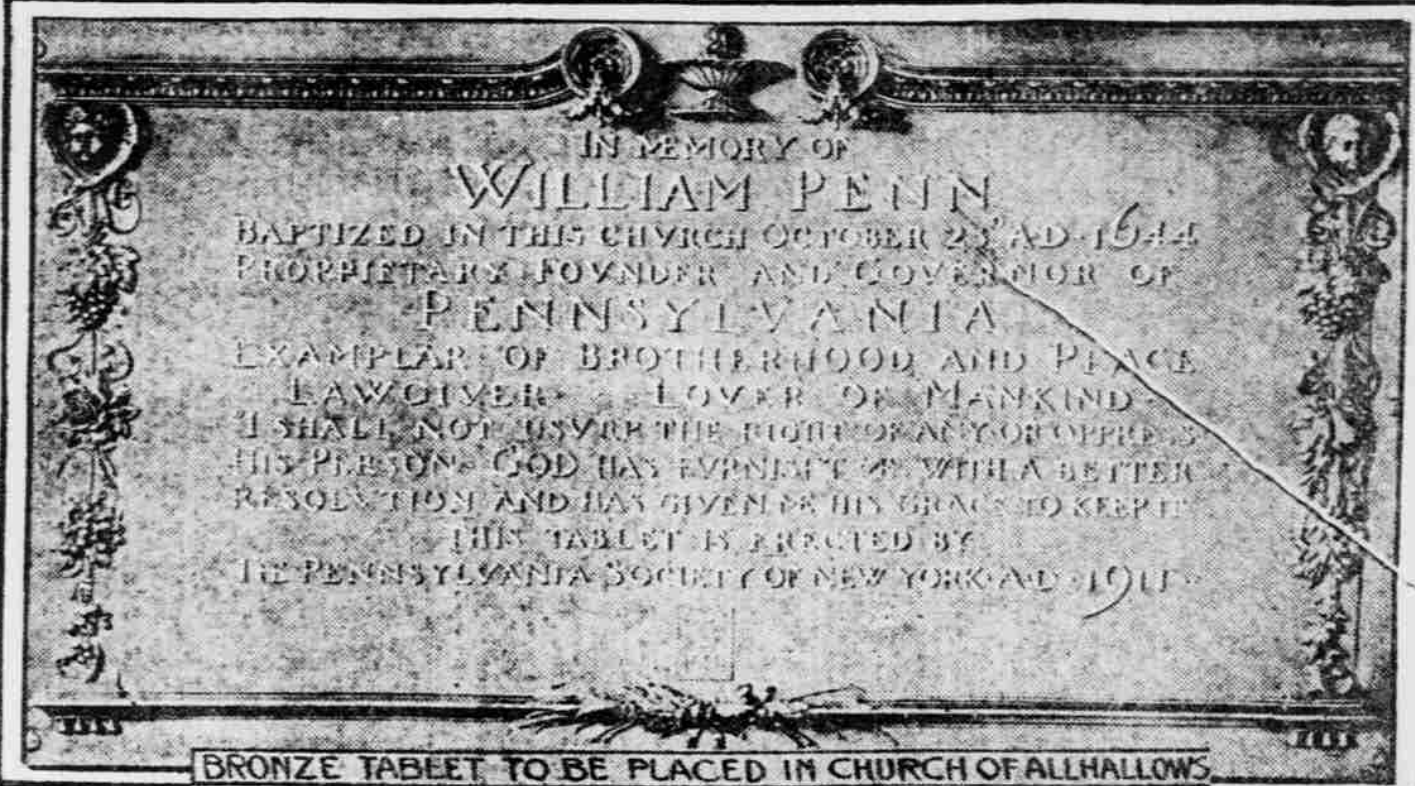 IN MEMORY OF
WILLIAM PENN
BAPTIZED IN THIS CHVRCH OCTOBER 23 AD·1644
PROPRIETARY FOVNDER AND GOVERNOR OF
PENNSYLVANIA
EXAMPLAR OF BROTHERHOOD AND PEACE
LAWGIVER · LOVER OF MANKIND
"I SHALL NOT USVRP THE RIGHT OF ANY OR OPPRESS
HIS PERSON· GOD HAS FVRNISHT ME WITH A BETTER
RESOLVTION AND HAS GIVEN ME HIS GRACE TO KEEP IT"
THIS TABLET IS ERECTED BY
THE PENNSYLVANIA SOCIETY OF NEW YORK·A·D·1911
BRONZE TABLET TO BE PLACED IN CHURCH OF ALLHALLOWS